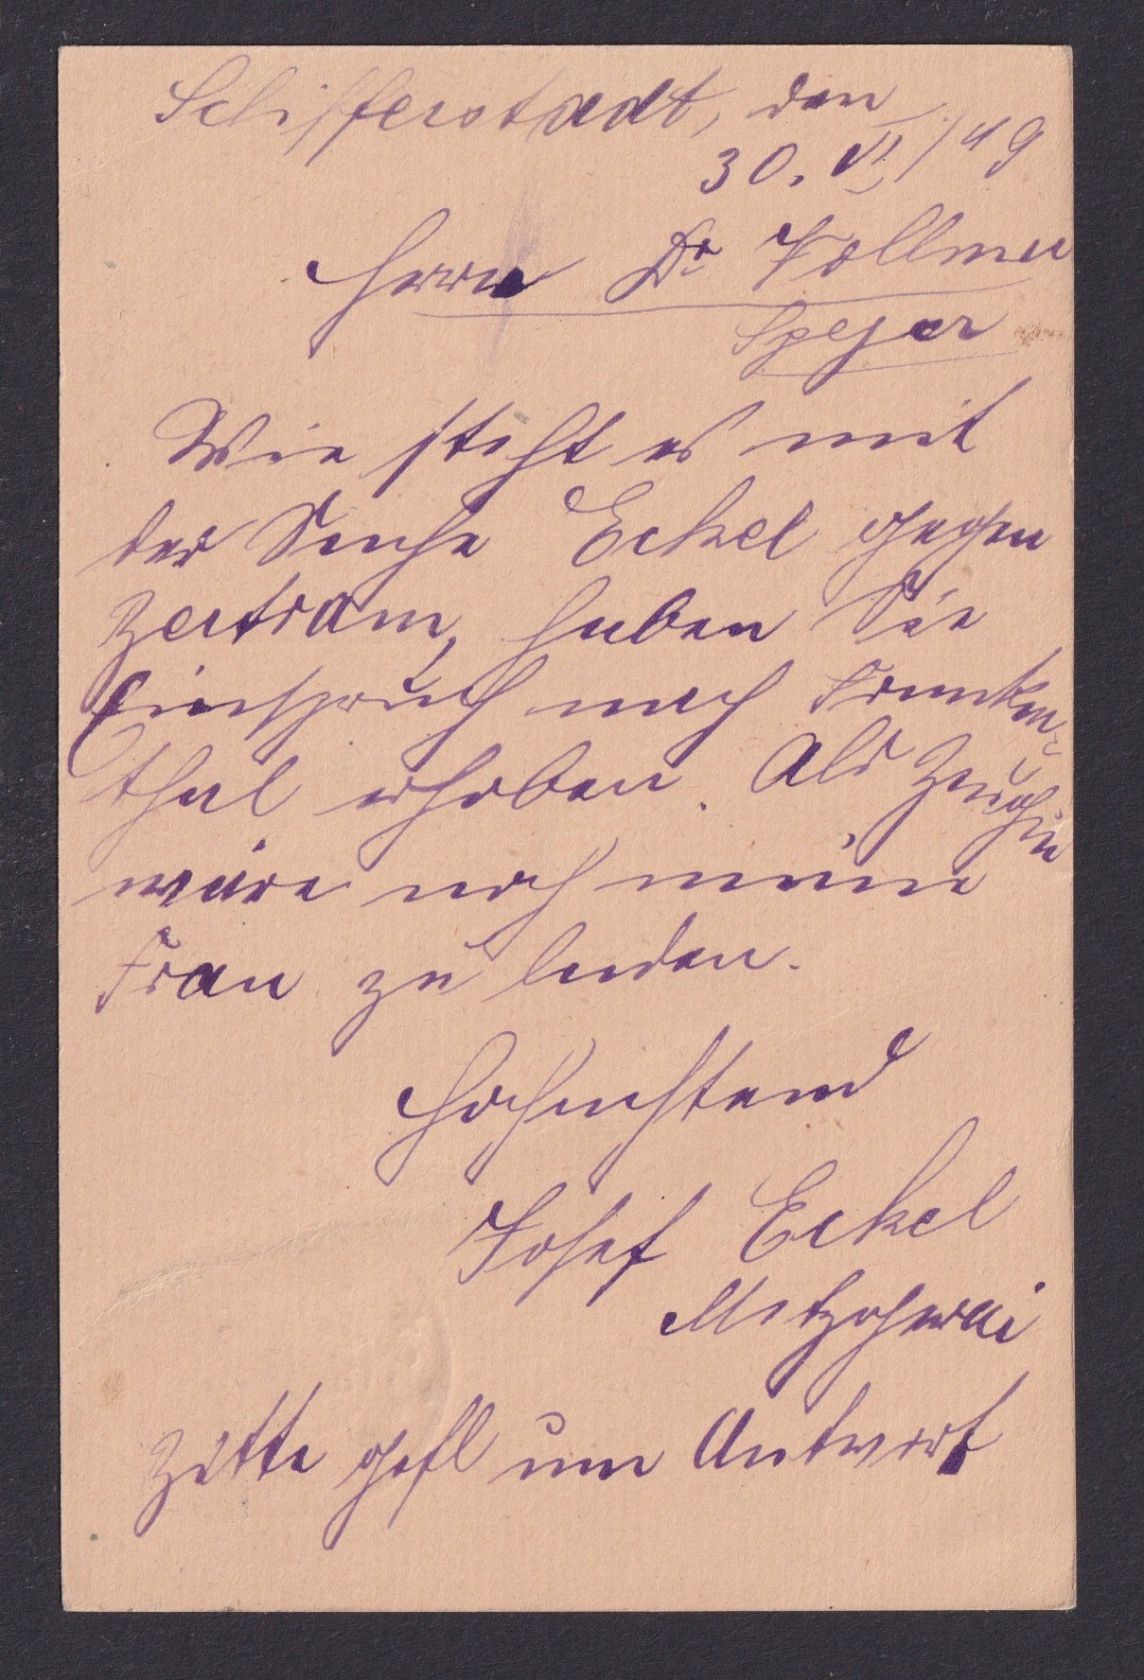 Schifferstadt, den
30. VI / 49
Herrn Dr Vollmer
Speyer
Wie steht es mit
der Sache Eckel gegen
Bertram, haben Sie
Einspruch nach Franken-
thal erhoben. Als Zeugin
wäre noch meine
Frau zu laden.
Hochachtend
Josef Eckel
Metzgerei
Bitte gefl um Antwort